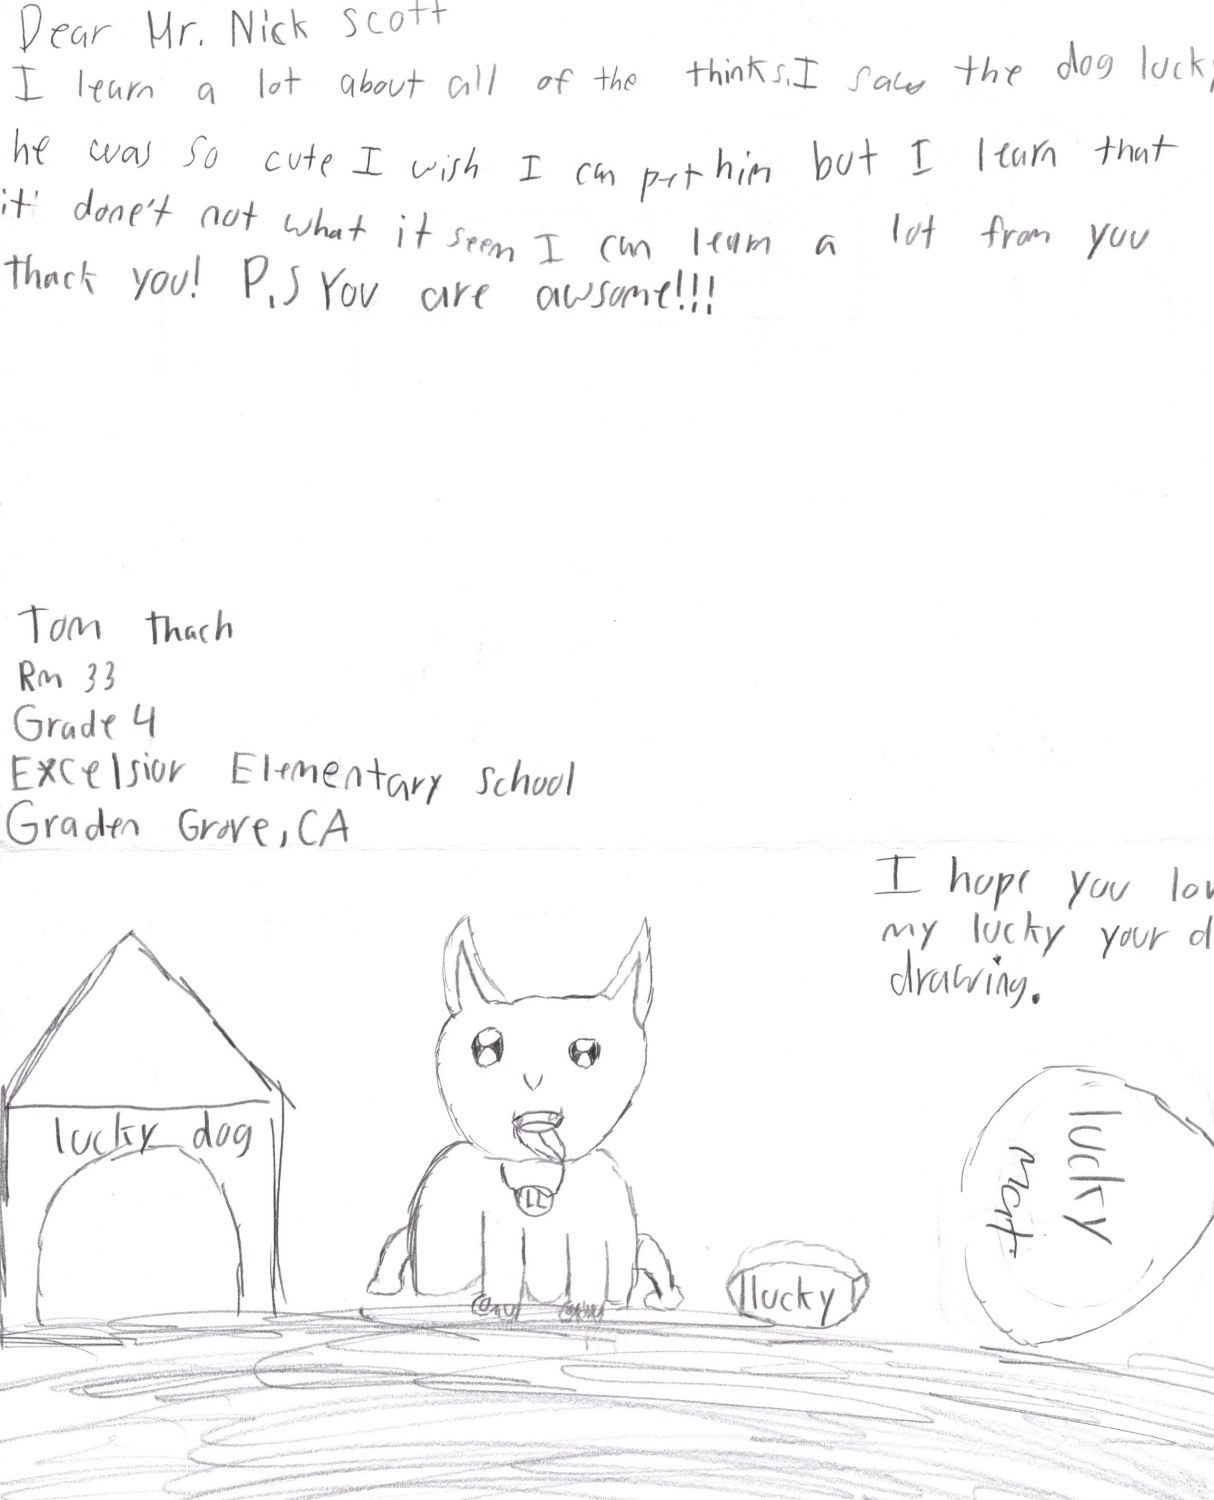 Dear Mr. Nick Scott
I learn a lot about all of the thinks. I saw the dog lucky
he was so cute I wish I can pet him but I learn that
it done't not what it seem I can learn a lot from you
thack you! P.S You are awsome!!!
Tom thach
Rm 33
Grade 4
Excelsior Elementary school
Graden Grove, CA
I hope you lov
my lucky your d
drawing.
lucky dog
LL
lucky
lucky
meat